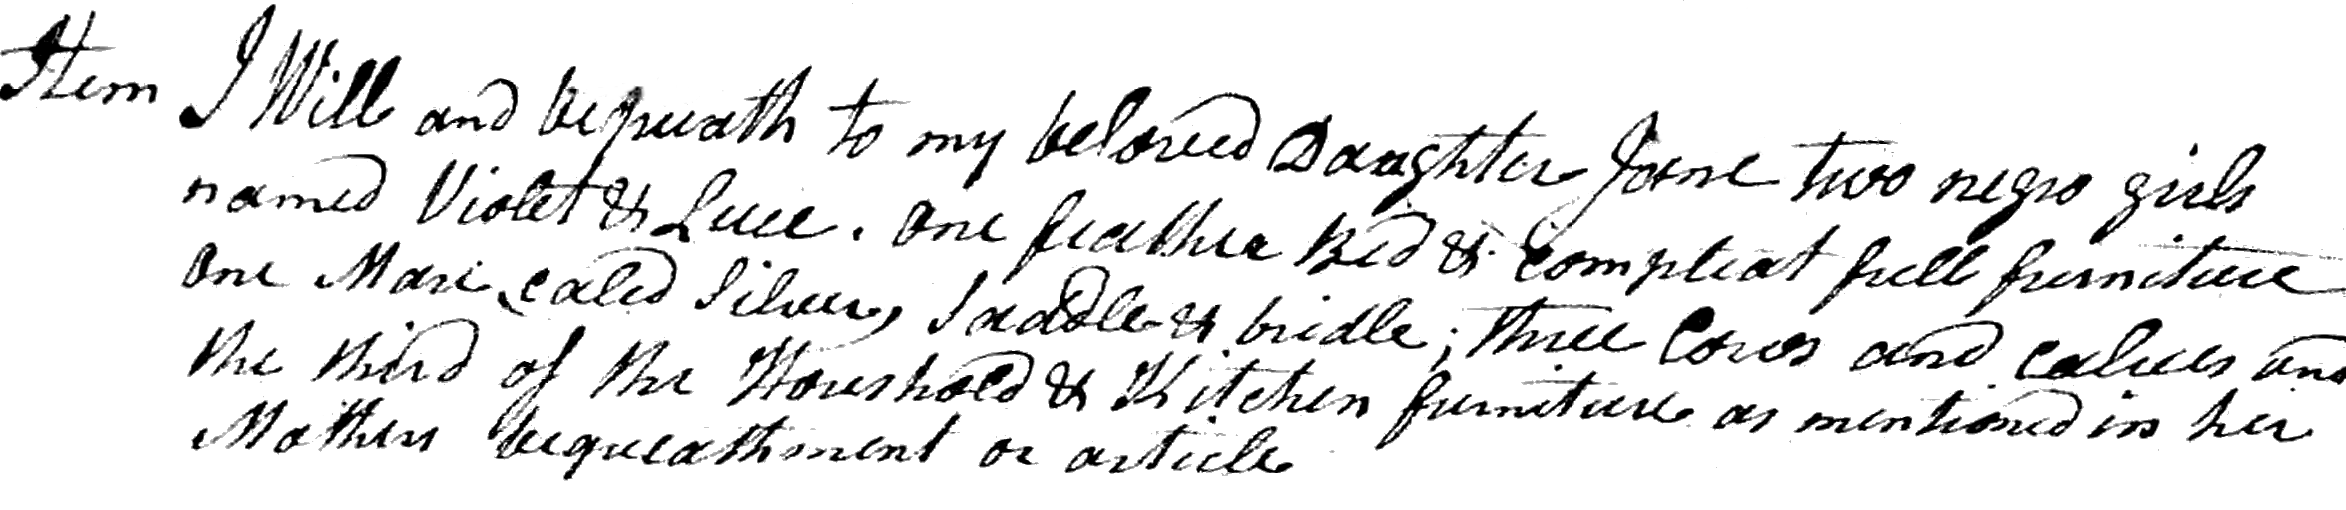 Item I Will and bequeath to my beloved Daughter Jane two negro girls
named Violet & Luce. One feather Bed & compleat full furniture
One Mare caled Silver, Saddle & bridle; three Cows and calves and
the third of the Houshold & Kitchen furniture as mentioned in her
Mothers bequeathment or article